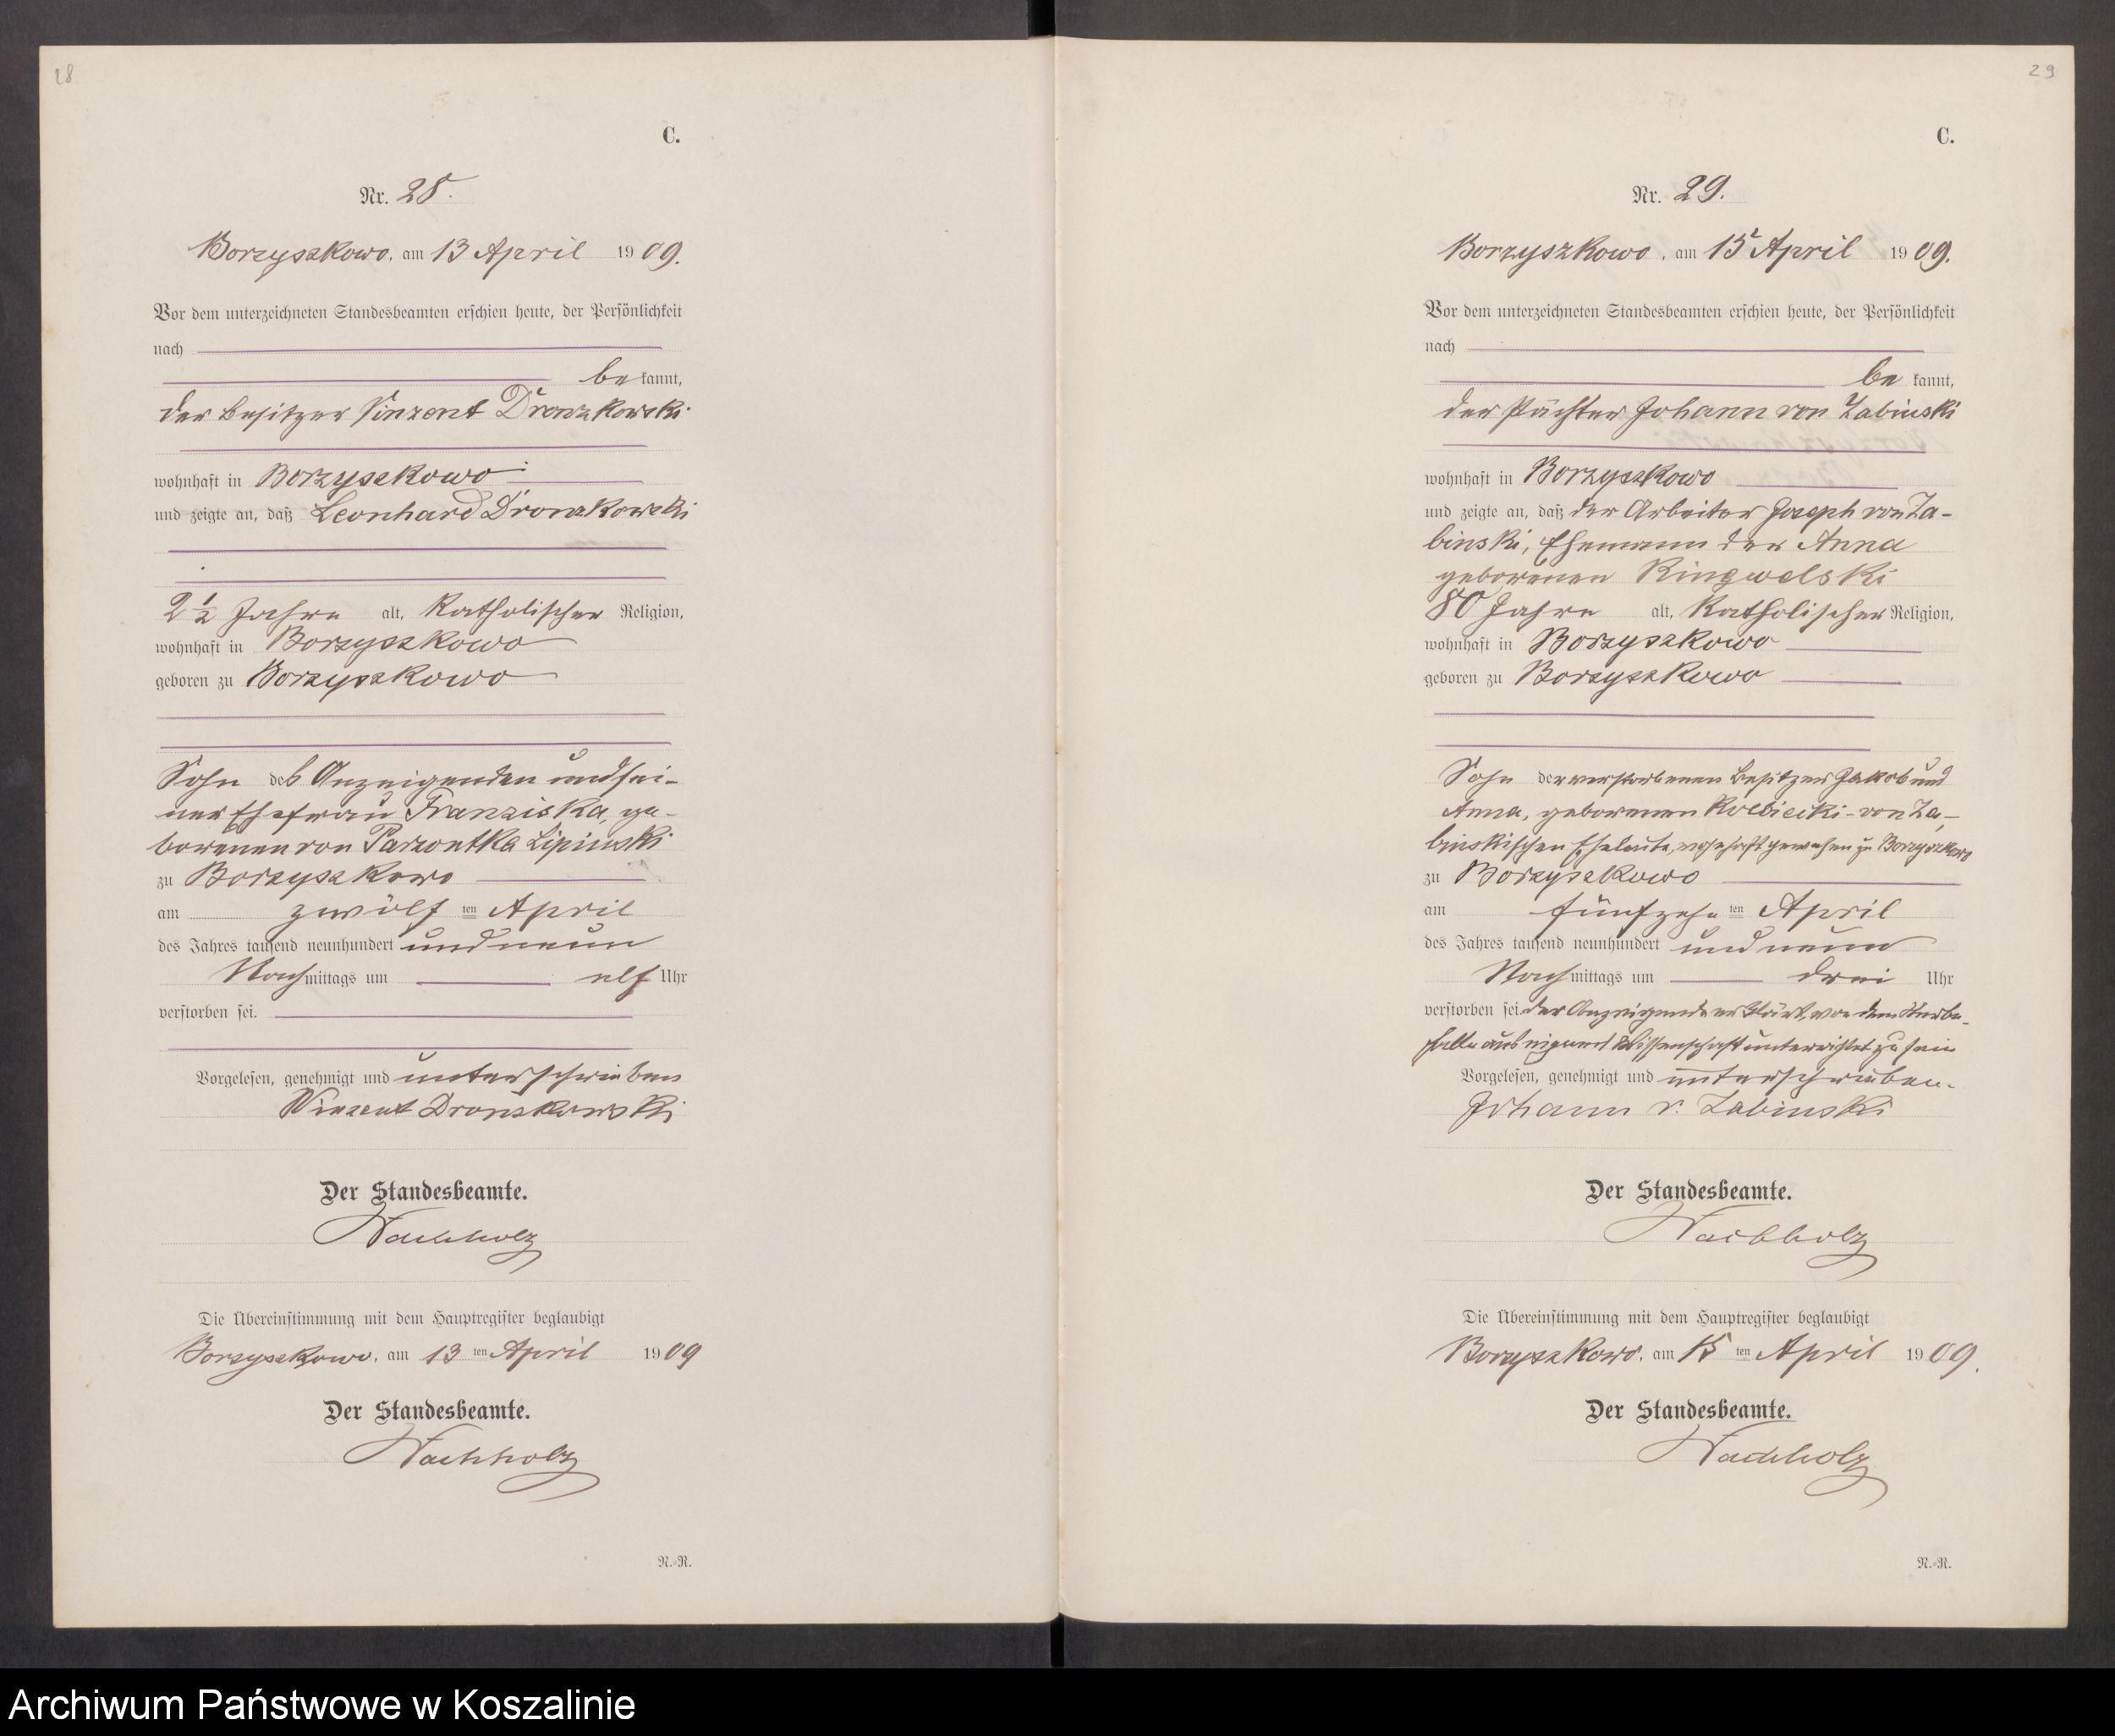 28
C.
Nr. 28.
Borzyszkowo, am 13 April 1909.
Vor dem unterzeichneten Standesbeamten erschien heute, der Persönlichkeit
nach
be kannt,
der Besitzer Vinzent Dronzkowski
wohnhaft in Borzyszkowo
und zeigte an, daß Leonhard Dronzkowski
2 1/2 Jahre alt, katholischer Religion,
wohnhaft in Borzyszkowo
geboren zu Borzyszkowo
Sohn des Anzeigenden und sei-
ner Ehefrau Franziska, ge-
borenen von Parzontka Lipinski
zu Borzyszkowo
am zwölf ten April
des Jahres tausend neunhundert und neun
Nachmittags um elf Uhr
verstorben sei.
Vorgelesen, genehmigt und unterschrieben
Winzent Dronskowski
Der Standesbeamte.
Wachholz
Die Übereinstimmung mit dem Hauptregister beglaubigt
Borzyszkowo, am 13 ten April 1909
Der Standesbeamte.
Wachholz
N.-R.
29
C.
Nr. 29.
Borzyszkowo, am 15 April 1909.
Vor dem unterzeichneten Standesbeamten erschien heute, der Persönlichkeit
nach
be kannt,
der Pächter Johann von Zabinski
wohnhaft in Borzyszkowo
und zeigte an, daß der Arbeiter Joseph von Za-
binski, Ehemann der Anna
geborenen Ringwelski
80 Jahre alt, katholischer Religion,
wohnhaft in Borzyszkowo
geboren zu Borzyszkowo
Sohn der verstorbenen Besitzer Jakob und
Anna, geborenen - von Za-
binskischen Eheleute, wohnhaft gewesen zu Borzyszkowo
zu Borzyszkowo
am fünfzehn ten April
des Jahres tausend neunhundert und neun
Nachmittags um drei Uhr
verstorben sei. der Anzeigende erklärt, von dem Sterbe-
falle aus eigener Wissenschaft unterrichtet zu sein
Vorgelesen, genehmigt und unterschrieben.
Johann v. Zabinski
Der Standesbeamte.
Wachholz
Die Übereinstimmung mit dem Hauptregister beglaubigt
Borzyszkowo, am 15 ten April 1909.
Der Standesbeamte.
Wachholz
N.-R.
Archiwum Państwowe w Koszalinie